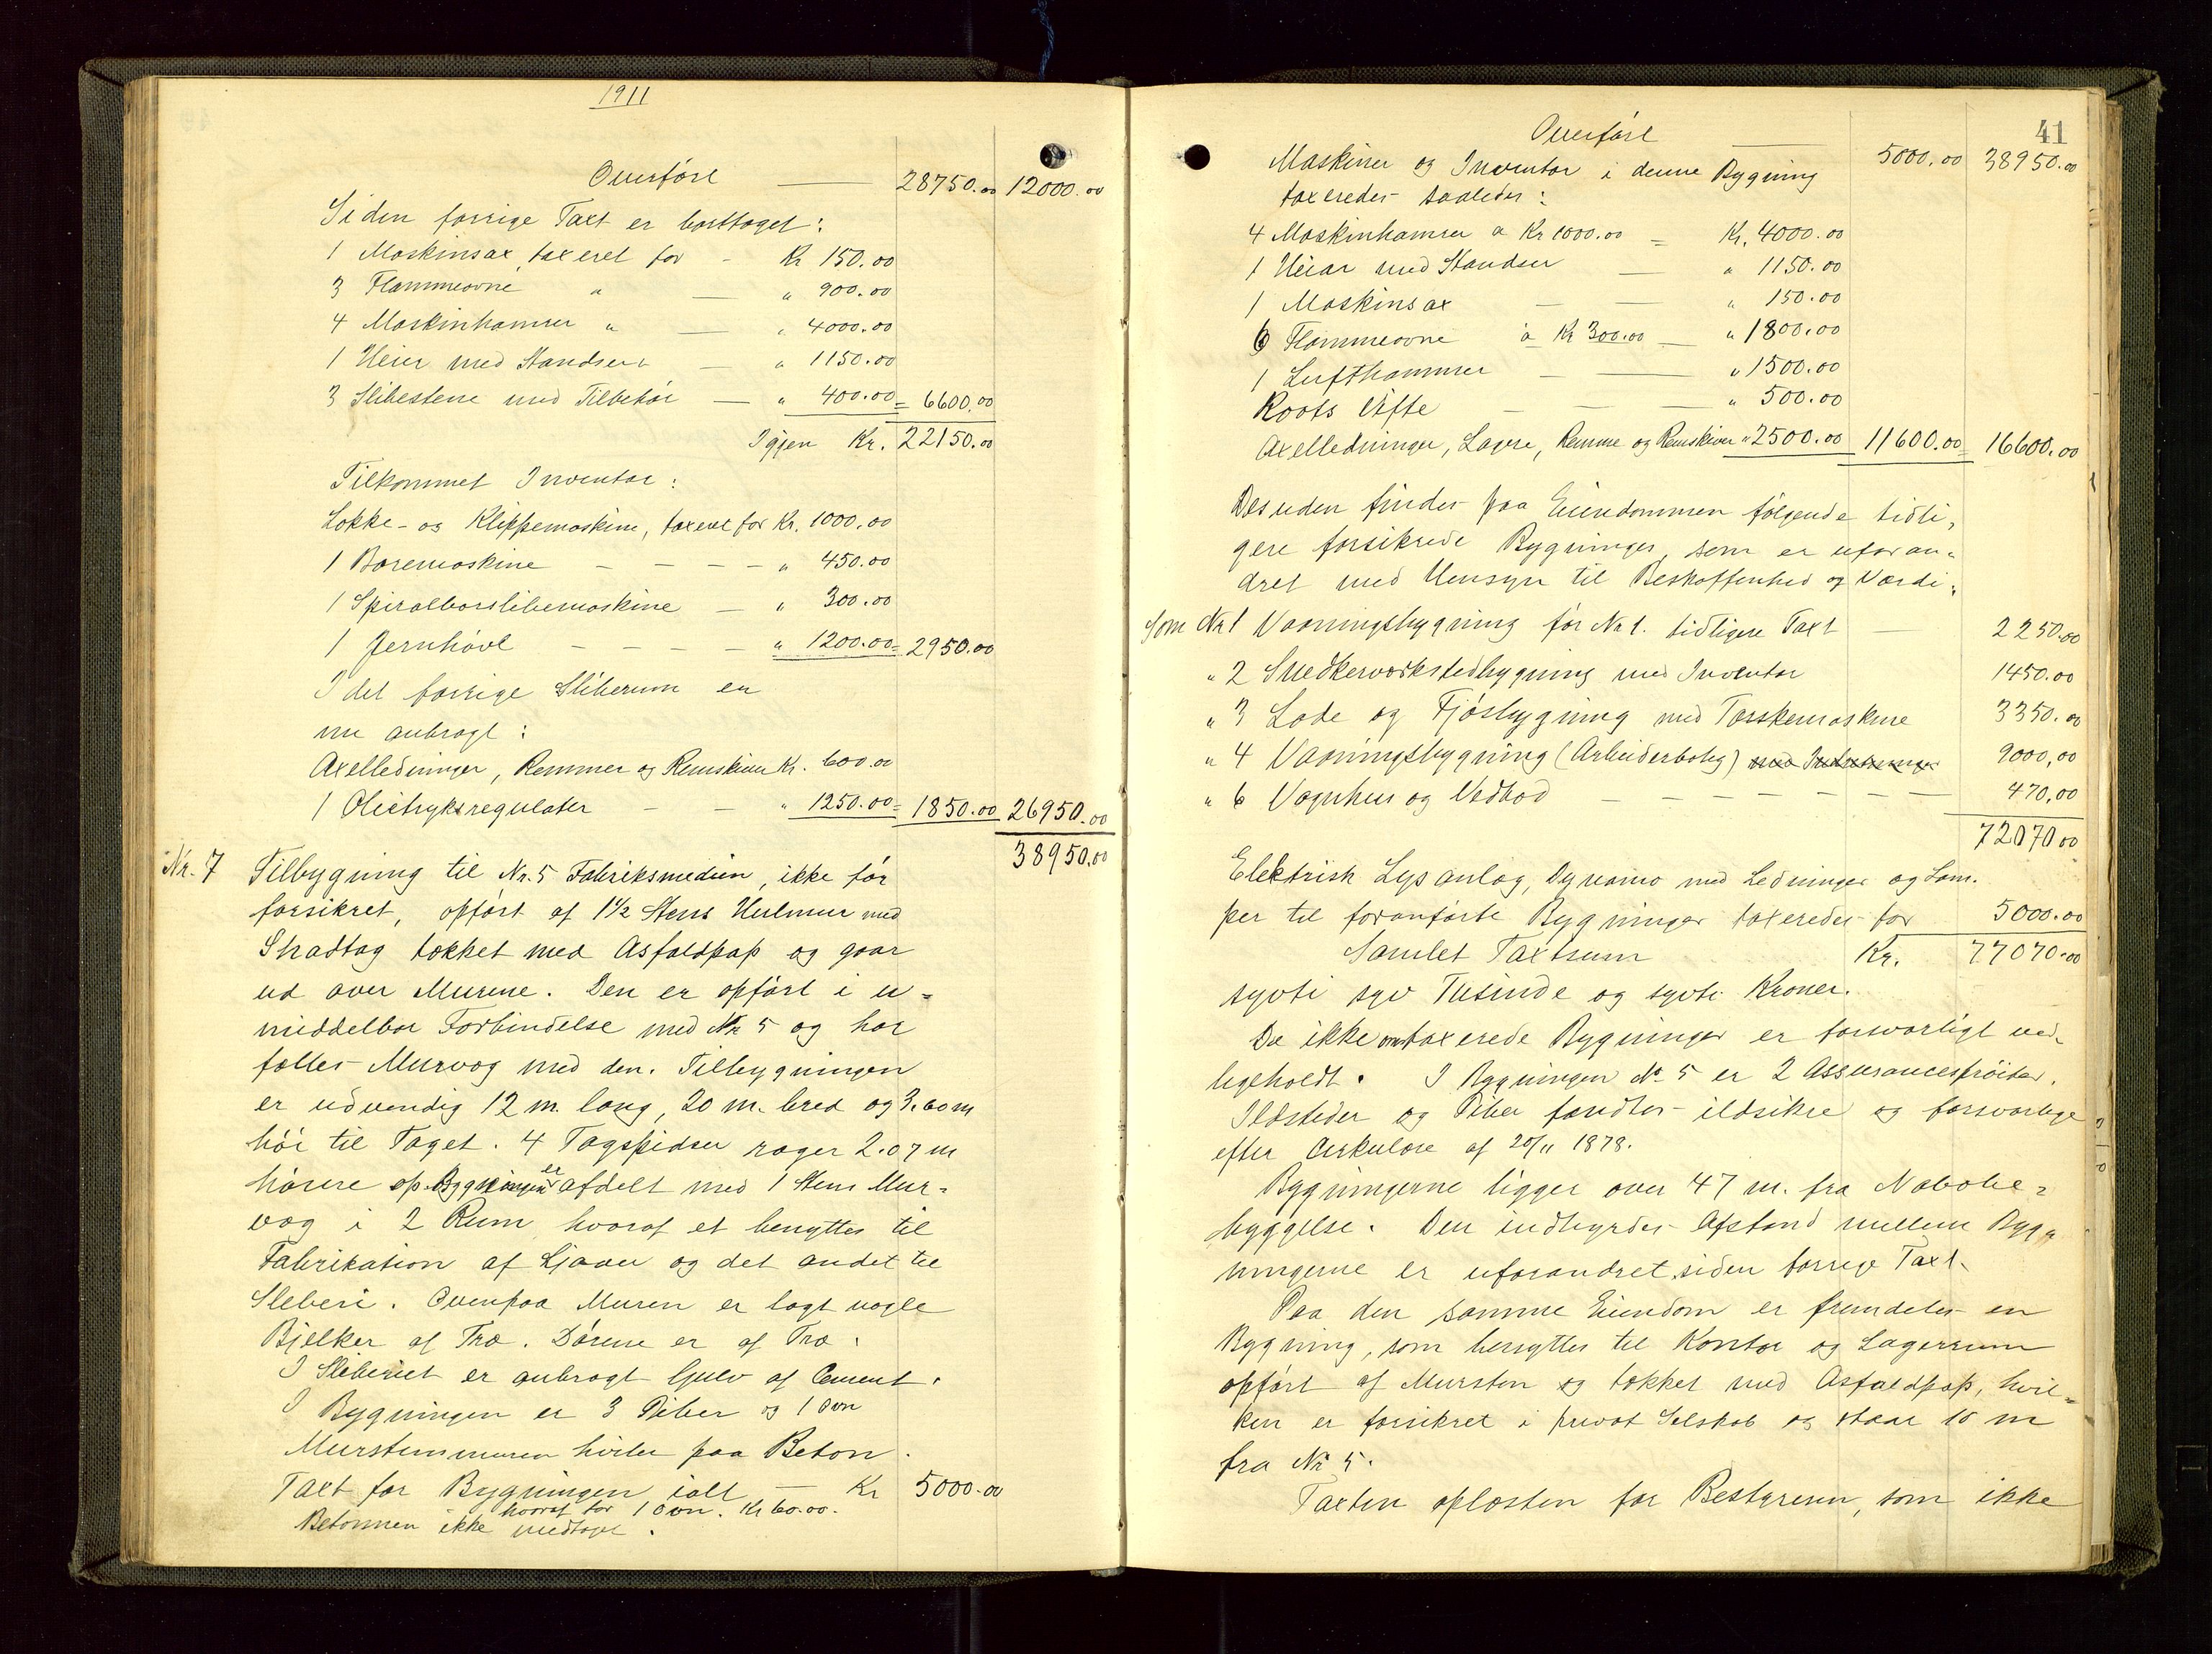 1911
Overført — 28750.00 12000.00
Siden forrige Taxt er borttaget:
1 Maskinsax, taxeret for - Kr 150.00
3 Flammeovne " — " 900.00
4 Maskinhamrer " — " 4000.00
1 Heier med Standser — " 1150.00
3 Slibestene med Tilbehør — " 400.00 = 6600.00
Igjen Kr. 22150.00
Tilkommet Inventar:
Lokke- og Klippemaskine, taxeret for Kr. 1000.00
1 Boremaskine - - - - " 450.00
1 Spiralborslibemaskine — " 300.00
1 Jernhøvl - - - - " 1200.00 = 2950.00
I det forrige Sliberum er
nu anbragt:
Axelledninger, Remmer og Remskiver Kr. 600.00
1 Olietryksregulator - - " 1250.00 = 1850.00 26950.00
38950.00
Nr. 7 Tilbygning til Nr. 5 Fabriksmedien, ikke før
forsikret, opført af 1½ Stens Hulmur med
Skadtag tækket med Asfaldpap og gaar
ud over Murene. Den er opført i u-
middelbar Forbindelse med Nr 5 og har
fælles Murvæg med den. Tilbygningen
er udvendig 12 m. lang, 20 m. bred og 3.60 m
høi til Taget. 4 Tagspidser rager 2.07 m
høiere op. Bygningen er afdelt med 1 Stens Mur-
væg i 2 Rum hvoraf et benyttes til
Fabrikation af Ljaaer og det andet til
Sliberi. Ovenpaa Muren er lagt nogle
Bjelker af Træ. Dørene er af Træ.
I Sliberiet er anbragt Gulv af Cement.
I Bygningen er 3 Piber og 1 Ovn
Murstensmuren hviler paa Beton.
Taxt for Bygningen ialt — Kr 5000.00
hvoraf for 1 Ovn. Kr 60.00.
Betonnen ikke medtaget.
41
Overført — 5000.00 38950.00
Maskiner og Inventar i denne Bygning
taxeredes saaledes:
4 Maskinhamrer a Kr 1000.00 = Kr. 4000.00
1 Heiar med Standser — " 1150.00
1 Maskinsax - — " 150.00
6 Flammeovne à Kr 300.00 — " 1800.00
1 Lufthammer - — " 1500.00
Roots Vifte - - — " 500.00
Axelledninger, Lagere, Remme og Remskiver " 2500.00 11600.00 = 16600.00
Desuden findes paa Eiendommen følgende tidli-
gere forsikrede Bygninger, som er uforan-
dret med Hensyn til Beskaffenhed og Værdi:
Som Nr 1 Vaaningsbygning før Nr 1. tidligere Taxt — 2250.00
" 2 Snedkerværkstedbygning med Inventar 1450.00
" 3 Lade og Fjøsbygning med Tærskemaskine 3350.00
" 4 Vaaningsbygning (Arbeiderbolig) 9000,00
" 6 Vognhus og Vedbod - - - - - - — 470,00
72070 00
Elektrisk Lysanlæg, Dynamo med Ledninger og Lam-
per til foranførte Bygninger taxeredes for 5000.00
Samlet Taxtsum Kr. 77070.00
sytti syv Tusinde og sytti Kroner.
De ikke omtaxerede Bygninger er forsvarligt ved-
ligeholdt. I Bygningen Nr 5 er 2 Assurancesprøiter.
Ildsteder og Piber fandtes ildsikre og forsvarlige
efter Cirkulære af 20/11 1878.
Bygningerne ligger over 47 m. fra Nabobe-
byggelse. Den indbyrdes Afstand mellem Byg-
ningerne er uforandret siden forrige Taxt.
Paa den samme Eiendom er fremdeles en
Bygning, som benyttes til Kontor og Lagerrum
opført af Mursten og tækket med Asfaldpap, hvil-
ken er forsikret i privat Selskab og staar 10 m
fra Nr 5.
Taxten oplæstes for Bestyreren, som ikke